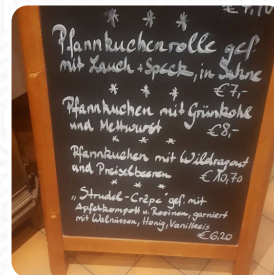 € 9,70
* * *
Pfannkuchenrolle gef.
mit Lauch + Speck, in Sahne
€ 7,-
* * *
Pfannkuchen mit Grünkohl
und Mettwurst
€ 8,-
* * *
Pfannkuchen mit Wildragout
und Preiselbeeren
€ 10,70
* * *
„Strudel-Crêpe gef. mit
Apfelkompott u. Rosinen, garniert
mit Walnüssen, Honig, Vanilleeis
€ 6,20